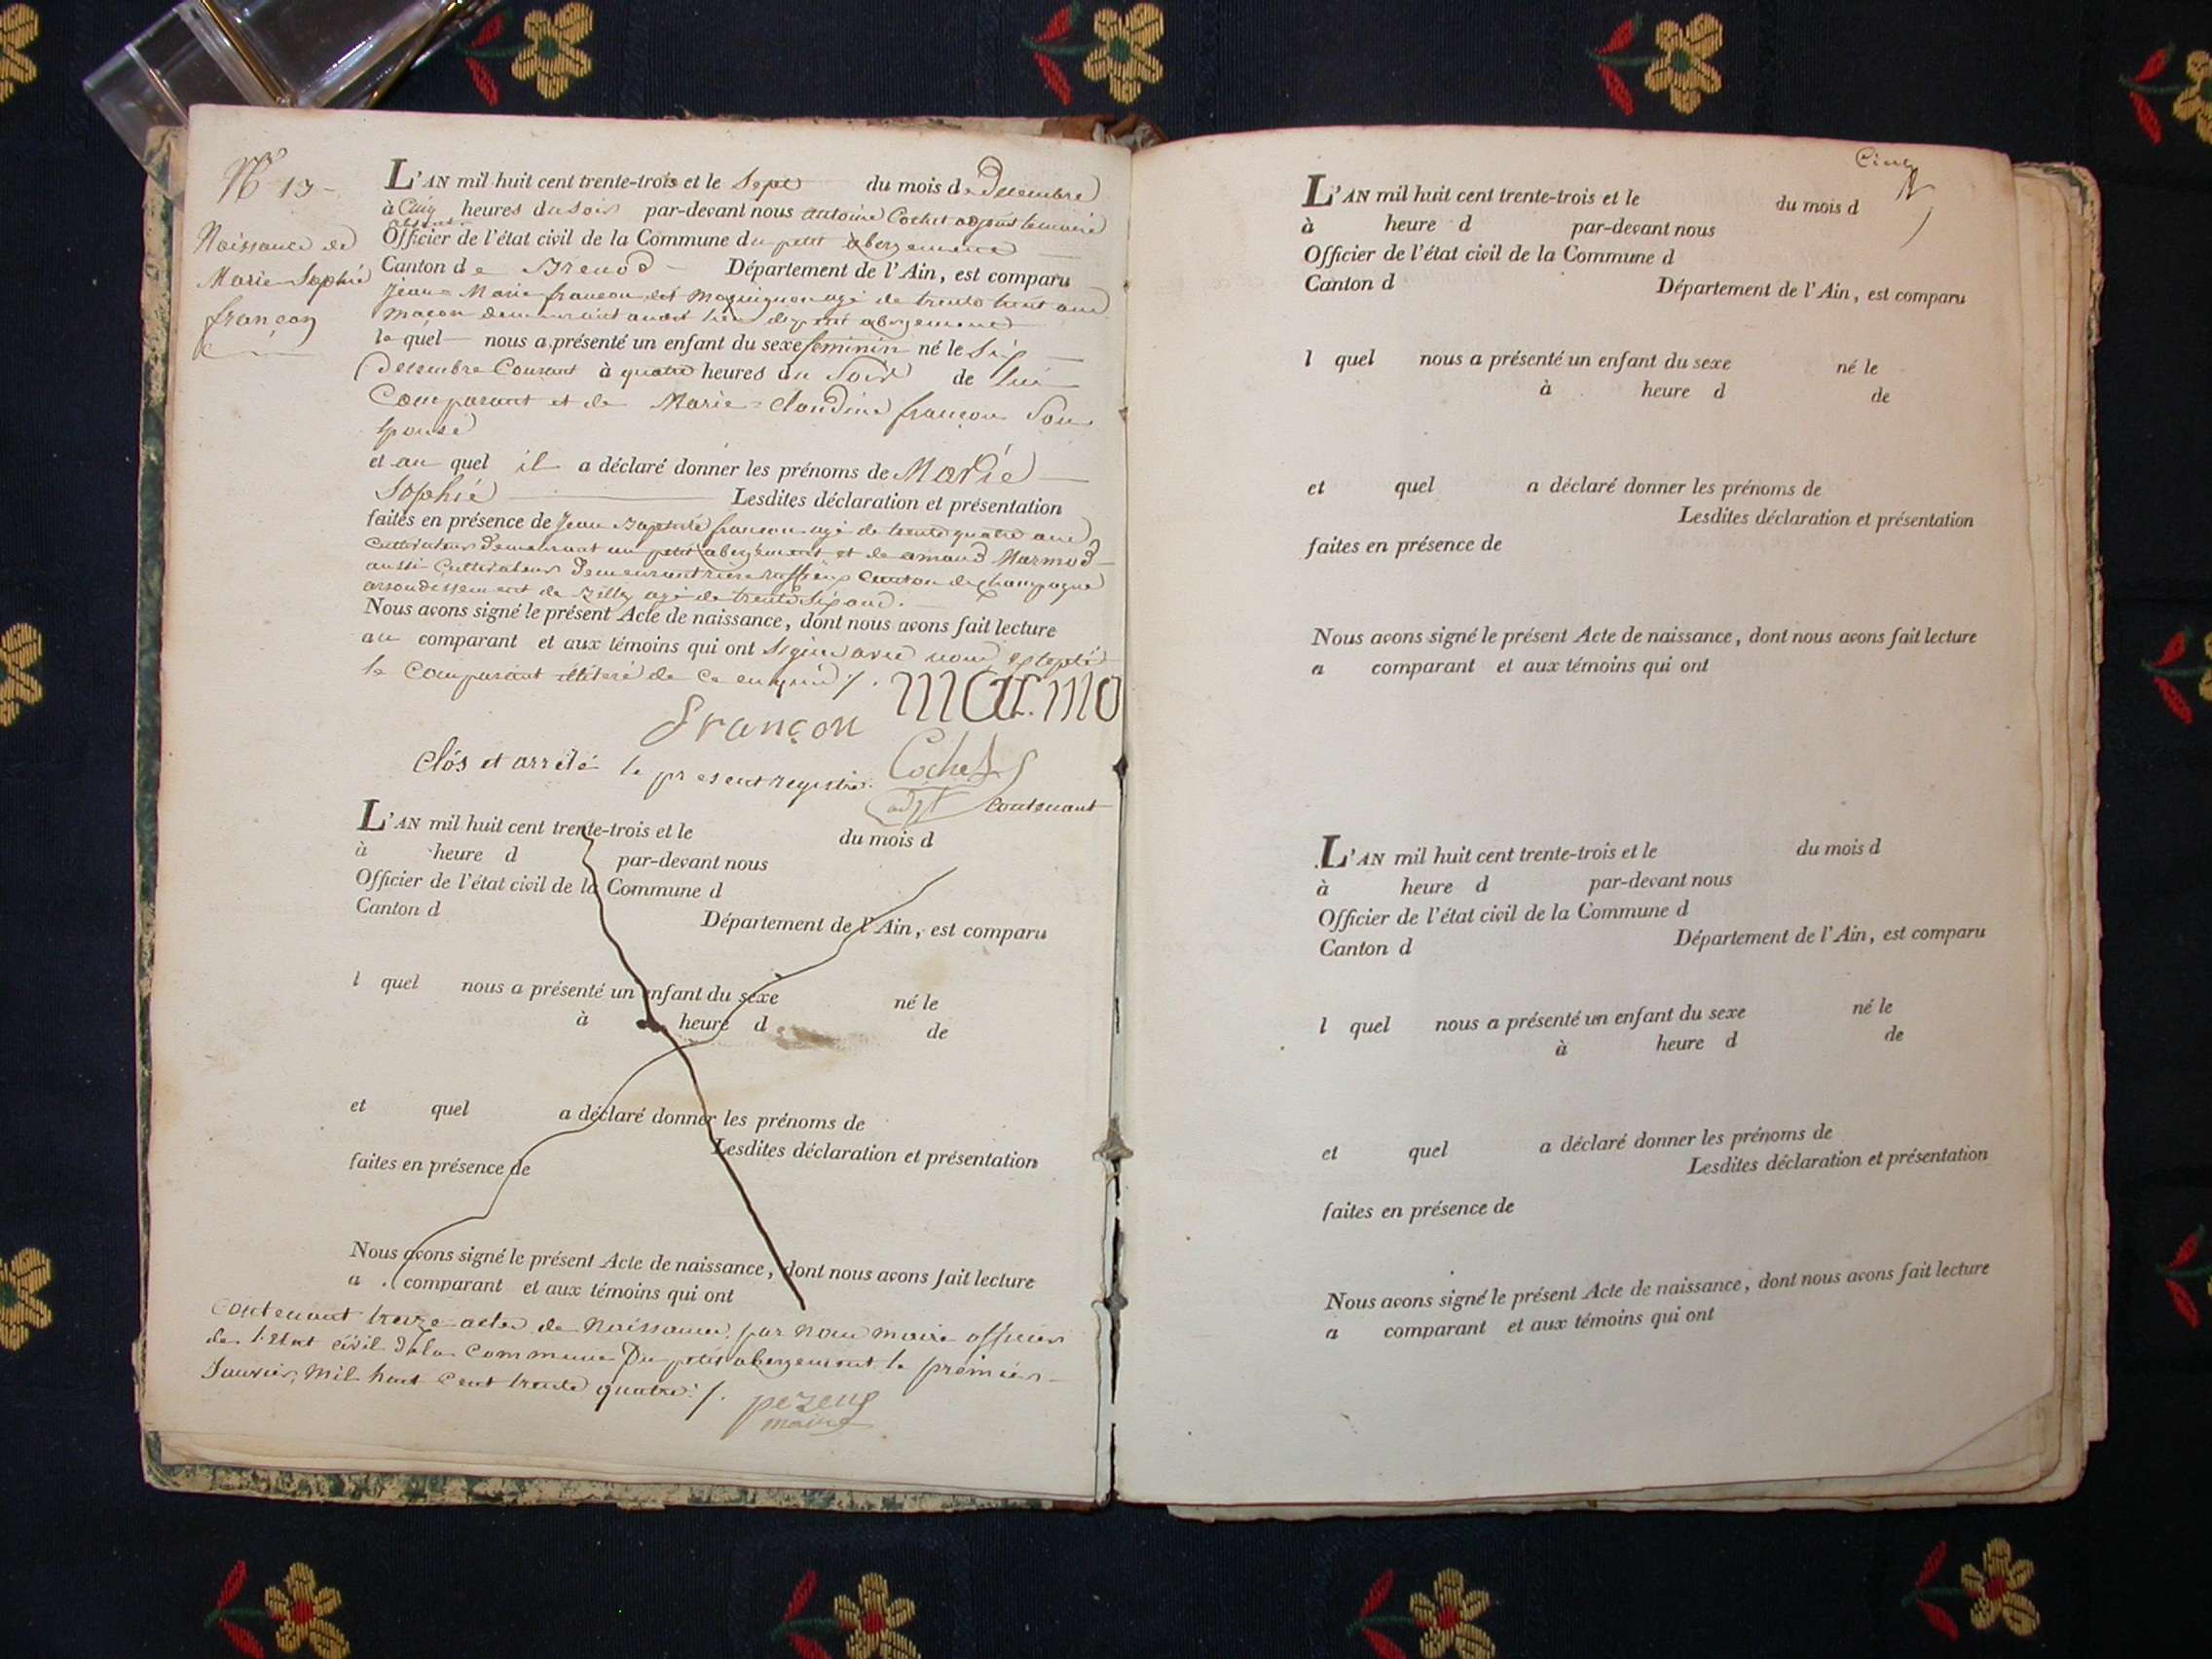 N° 13
Naissance de
Marie Sophie
françon
L'AN mil huit cent trente-trois et le Sept du mois de Decembre
à Cinq heures du soir par-devant nous antoine Cochet adjoint
Officier de l'état civil de la Commune du petit abergement
Canton de Brenod Département de l'Ain, est comparu
jean-Marie françon dit agé de trente huit ans
maçon demeurant audit lieu du petit abergement
le quel nous a présenté un enfant du sexe feminin né le Six
Decembre Courant à quatre heures du Soir de lui
Comparant et de Marie-Claudine françon Son
Epouse
et au quel il a déclaré donner les prénoms de Marie
Sophie Lesdites déclaration et présentation
faites en présence de Jean Baptiste françon agé de trente quatre ans
Cultivateur demeurant au petit abergement et de amand Marmod
aussi Cultivateur Demeurant Canton de champagne
arrondissement de agé de trente Six ans.
Nous avons signé le présent Acte de naissance, dont nous avons fait lecture
au comparant et aux témoins qui ont Signé avec nous excepté
le comparant illiteré de ce enquis ./.
françon marmo
Cochet
adjt
Clos et arrêté le present registre contenant
L'AN mil huit cent trente-trois et le du mois d
à heure d par-devant nous
Officier de l'état civil de la Commune d
Canton d Département de l'Ain, est comparu
l quel nous a présenté un enfant du sexe né le
à heure d de
et quel a déclaré donner les prénoms de
Lesdites déclaration et présentation
faites en présence de
Nous avons signé le présent Acte de naissance, dont nous avons fait lecture
a comparant et aux témoins qui ont
contenant treize actes de Naissance par nous maire officier
de l'Etat civil de la Commune Du petit abergement le premier
Janvier mil huit Cent trente quatre ./.
pezeux
maire
Cinq
L'AN mil huit cent trente-trois et le du mois d
à heure d par-devant nous
Officier de l'état civil de la Commune d
Canton d Département de l'Ain, est comparu
l quel nous a présenté un enfant du sexe né le
à heure d de
et quel a déclaré donner les prénoms de
Lesdites déclaration et présentation
faites en présence de
Nous avons signé le présent Acte de naissance, dont nous avons fait lecture
a comparant et aux témoins qui ont
L'AN mil huit cent trente-trois et le du mois d
à heure d par-devant nous
Officier de l'état civil de la Commune d
Canton d Département de l'Ain, est comparu
l quel nous a présenté un enfant du sexe né le
à heure d de
et quel a déclaré donner les prénoms de
Lesdites déclaration et présentation
faites en présence de
Nous avons signé le présent Acte de naissance, dont nous avons fait lecture
a comparant et aux témoins qui ont